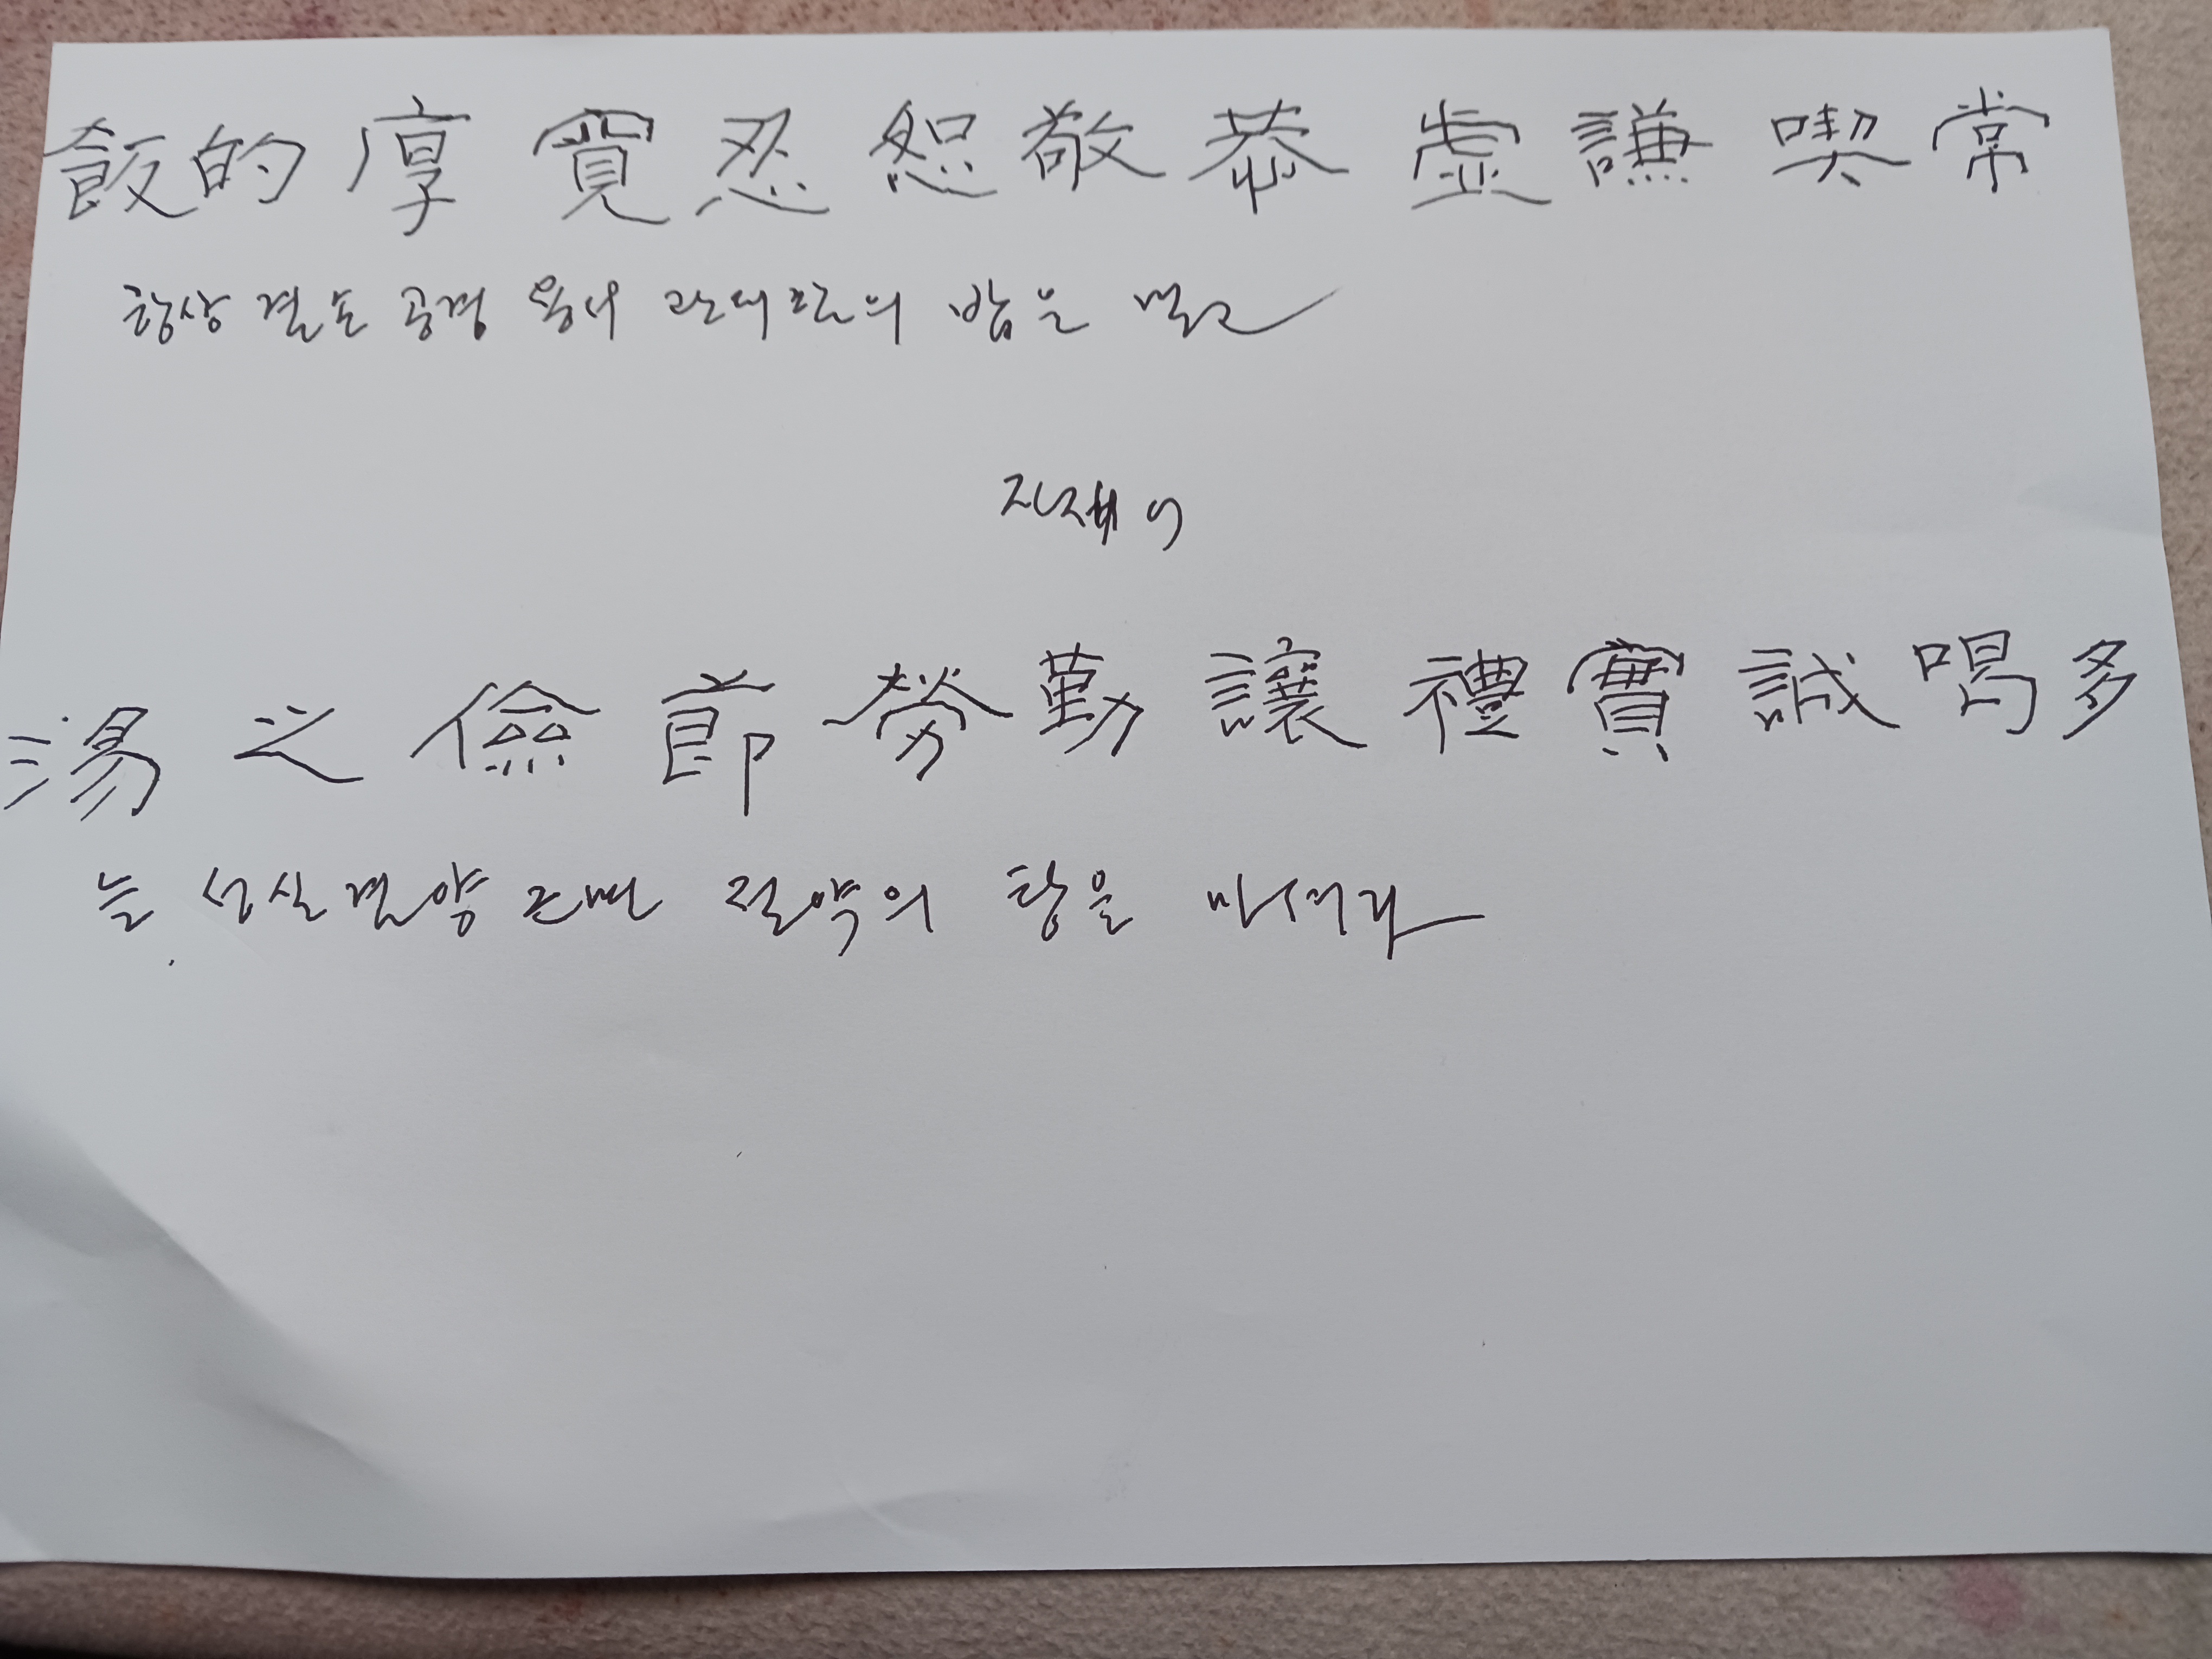 飯的厚寬忍恕敬恭虛謙喫常
항상 겸손 공경 용서 관대함의 밥을 먹고
湯之儉節勞勤讓禮實誠喝多
늘 성실 겸양 근면 절약의 탕을 마셔라